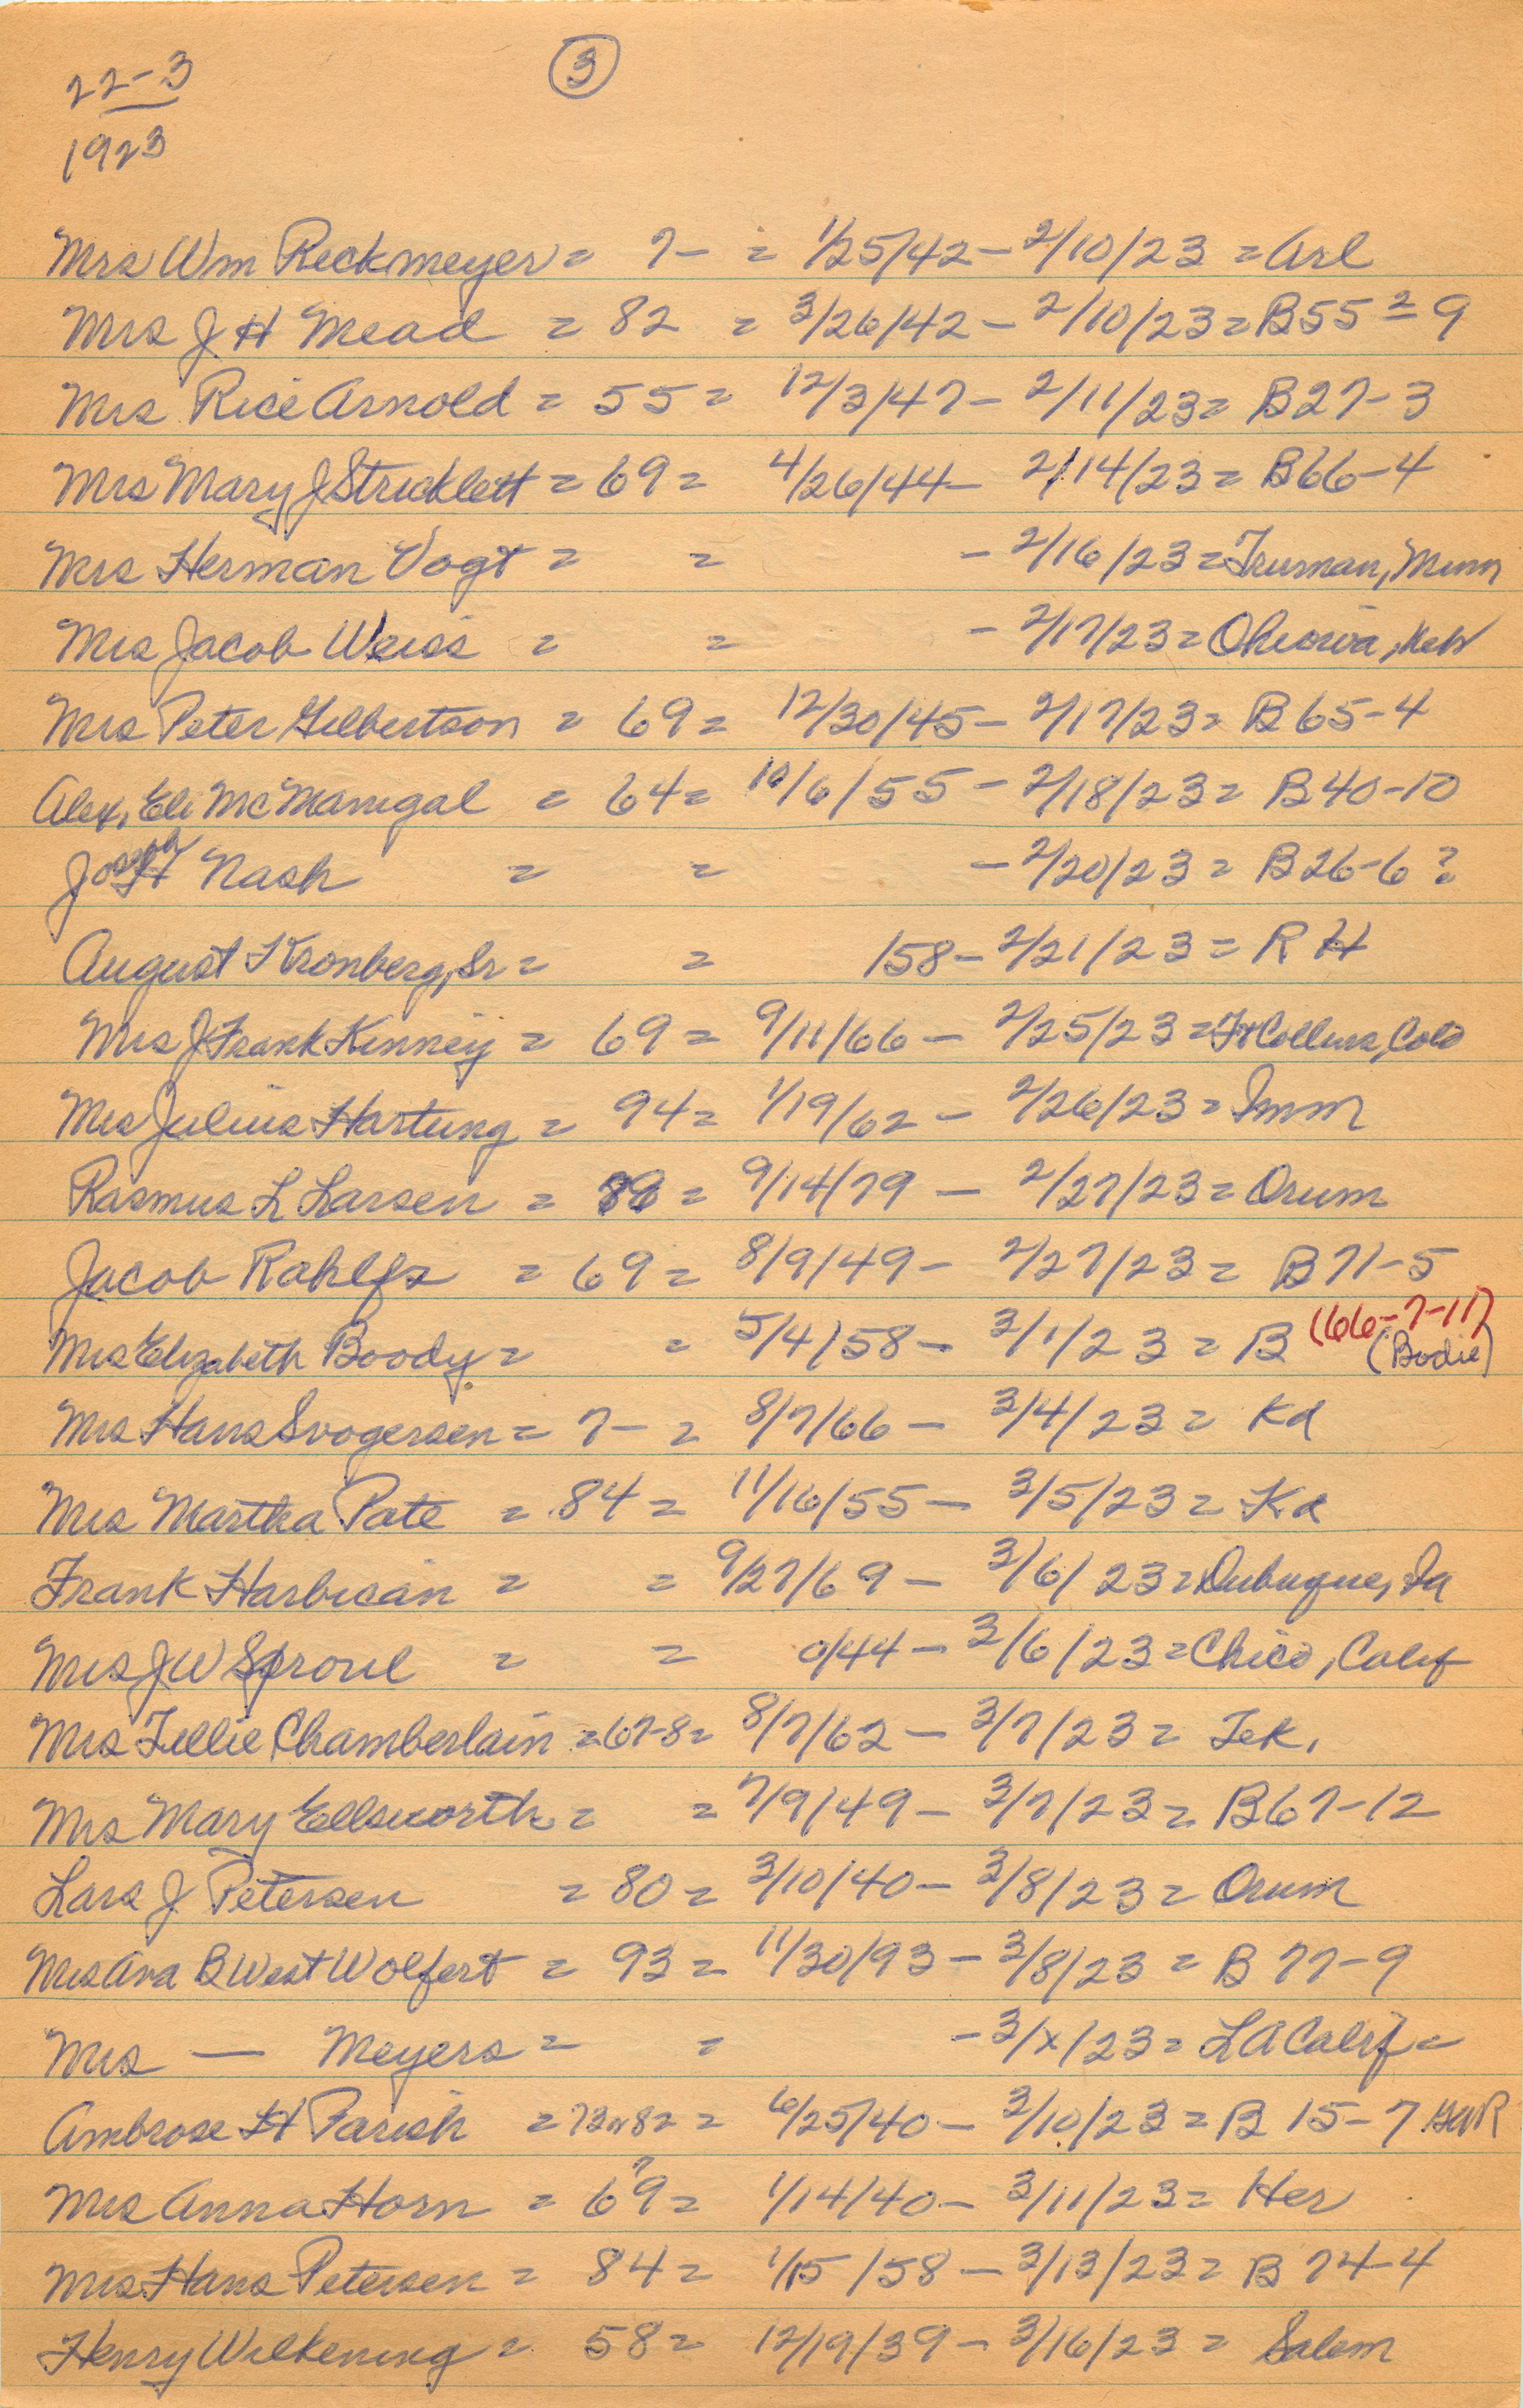 22-3
③
1923
Mrs Wm Reckmeyer = 7- = 1/25/42 - 2/10/23 = Arl
Mrs J H Mead = 82 = 3/26/42 - 2/10/23 = B55 = 9
Mrs Rice Arnold = 55 = 12/3/47 - 2/11/23 = B27-3
Mrs Mary J Stricklett = 69 = 4/26/44 - 2/14/23 = B66-4
Mrs Herman Vogt = = - 2/16/23 = Truman, Minn
Mrs Jacob Weiss = = - 2/17/23 = Ohiowa, Neb
Mrs Peter Gilbertson = 69 = 12/30/45 - 2/17/23 = B65-4
Alex, Eli McManigal = 64 = 10/6/55 - 2/18/23 = B40-10
Joseph Nash = = - 2/20/23 = B26-6?
August Kronberg, Sr = = 158 - 2/21/23 = R H
Mrs J Frank Kinney = 69 = 9/11/66 - 2/25/23 = Ft Collins, Colo
Mrs Julius Hartung = 94 = 1/19/62 - 2/26/23 = Imm
Rasmus L Larsen = = 9/14/79 - 2/27/23 = Orum
Jacob Rahlfs = 69 = 8/9/49 - 2/27/23 = B71-5
Mrs Elizabeth Boody = = 5/4/58 - 3/1/23 = B (66-7-11)
(Bodie)
Mrs Hans Svogersen = 7- = 8/7/66 - 3/4/23 = Kd
Mrs Martha Pate = 84 = 11/16/55 - 3/5/23 = Kd
Frank Harbican = = 9/27/69 - 3/6/23 = Dubuque, Ia
Mrs J W Sproul = = 0/44 - 3/6/23 = Chico, Calif
Mrs Tillie Chamberlain = 67-8 = 8/7/62 - 3/7/23 = Tek.
Mrs Mary Ellsworth = = 7/9/49 - 3/7/23 = B67-12
Lars J Petersen = 80 = 3/10/40 - 3/8/23 = Orum
Mrs Ava B West Wolfert = 93 = 11/30/93 - 3/8/23 = B 77-9
Mrs — Meyers = = - 3/x/23 = L A Calif =
Ambrose H Parish = 73 or 82 = 6/25/40 - 3/10/23 = B 15-7 GAR
Mrs Anna Horn = 69? = 1/14/40 - 3/11/23 = Her
Mrs Hans Petersen = 84 = 1/15/58 - 3/13/23 = B 74-4
Henry Wilkening = 58 = 12/19/39 - 3/16/23 = Salem